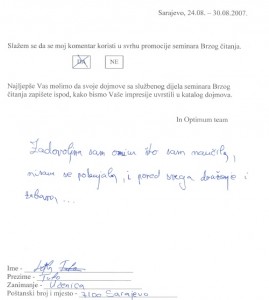 Sarajevo, 24.08. – 30.08.2007.
Slažem se da se moj komentar koristi u svrhu promocije seminara Brzog čitanja.
DA NE
Najljepše Vas molimo da svoje dojmove sa službenog dijela seminara Brzog
čitanja zapišete ispod, kako bismo Vaše impresije uvrstili u katalog dojmova.
In Optimum team
Zadovoljna sam onim što sam naučila,
nisam se pokajala, i pored svega druženje i
zabava ...
Ime -
Prezime -
Zanimanje - Učenica
Poštanski broj i mjesto - 7100 Sarajevo